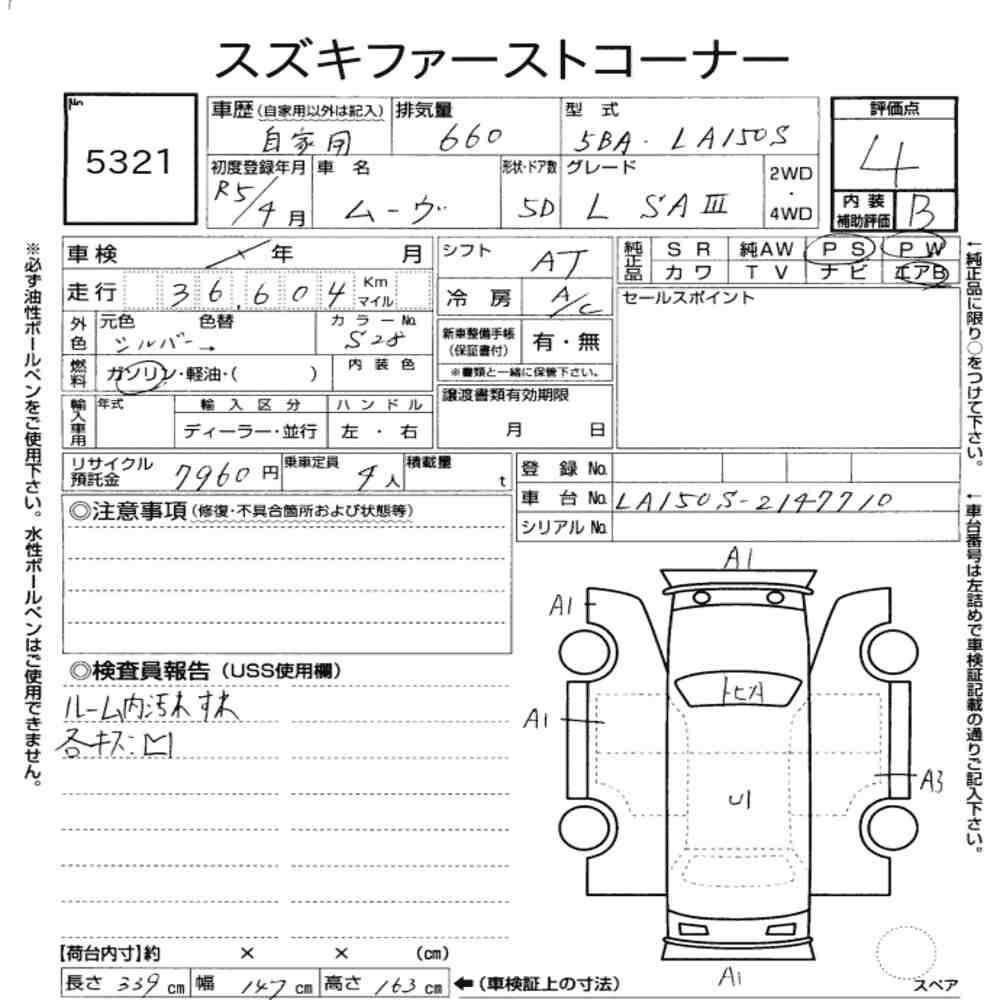 スズキファーストコーナー
No.
5321
車歴(自家用以外は記入) 自家用
排気量 660
型式 5BA-LA150S
評価点 4
初度登録年月 R5/4月
車名 ムーヴ
形状・ドア数 5D
グレード L SAⅢ
2WD・4WD
内装補助評価 B
車検 年 月
シフト AT
純正品 SR 純AW PS PW
カワ TV ナビ エアB
走行 36,604 Km マイル
冷房 A/C
セールスポイント
外色 元色 シルバー 色替 → カラーNo. S28
新車整備手帳(保証書付) 有・無
※書類と一緒に保管下さい。
燃料 ガソリン・軽油・( ) 内装色
輸入車用 年式 輸入区分 ハンドル
ディーラー・並行 左・右
譲渡書類有効期限
月 日
リサイクル預託金 7960円
乗車定員 4人
積載量 t
登録No.
車台No. LA150S-2147710
シリアルNo.
◎注意事項(修復・不具合箇所および状態等)
◎検査員報告(USS使用欄)
ルーム内汚れすれ
各キズ凹
A1
A1
A1
トビA
A3
U1
A1
スペア
【荷台内寸】約 × × (cm)
長さ 339cm 幅 147cm 高さ 163cm ←(車検証上の寸法)
※必ず油性ボールペンをご使用下さい。水性ボールペンはご使用できません。
←純正品に限り○をつけて下さい。
←車台番号は左詰めで車検証記載の通りご記入下さい。